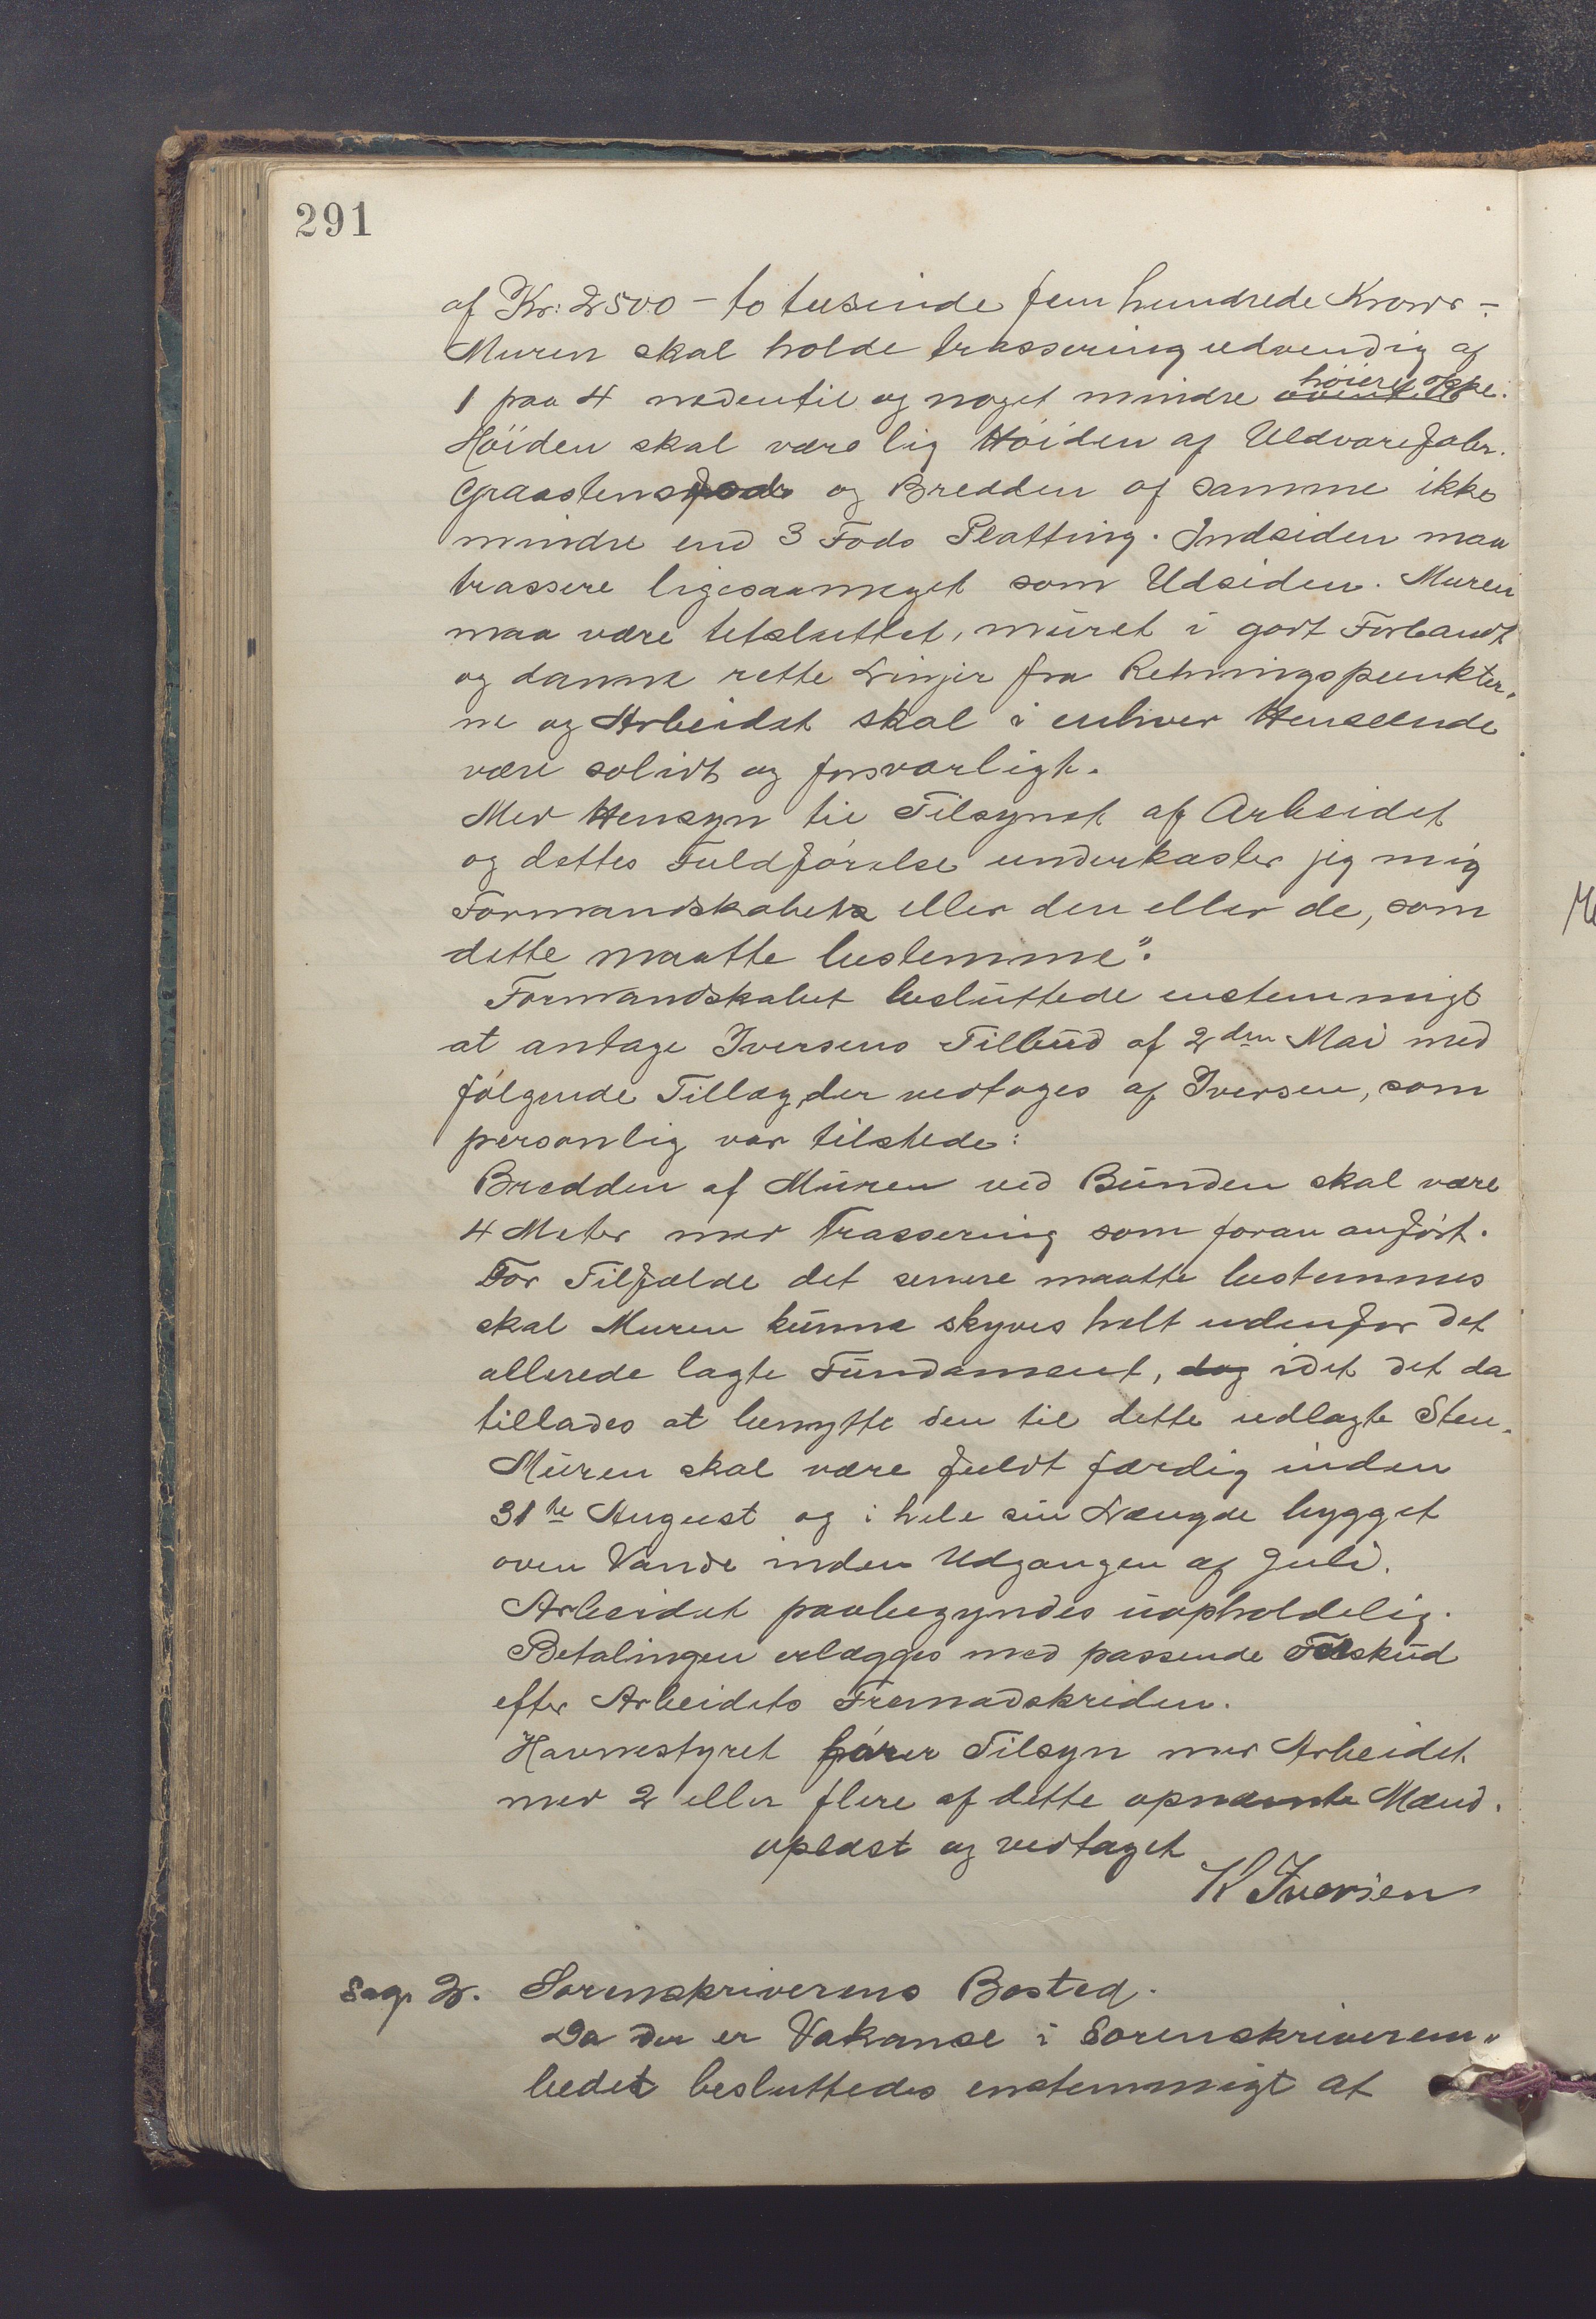 291
af Kr: 2500 – to tusinde fem hundrede Kroner –
Muren skal holde trassering udvendig af
1 paa 4 nedentil og noget mindre høiere oppe.
Høiden skal være lig Høiden af Uldvarefabr.
Graastens og Bredden af samme ikke
mindre end 3 Fods Platting. Indsiden maa
trassere ligesaameget som Udsiden. Muren
maa være tetsluttet, muret i godt Forbandt
og danne rette Linjer fra Retningspunkter-
ne og Arbeidet skal i enhver Henseende
være solidt og forsvarligt.
Med Hensyn til Tilsynet af Arbeidet
og dettes Fuldførelse underkaster jeg mig
Formandskabets eller den eller de, som
dette maatte bestemme".
Formandskabet besluttede enstemmigt
at antage Iversens Tilbud af 2den Mai med
følgende Tillæg, der vedtoges af Iversen, som
personlig var tilstede:
Bredden af Muren ved Bunden skal være
4 Meter med Trassering som foran anført.
For Tilfælde det senere maatte bestemmes
skal Muren kunne skyves helt udenfor det
allerede lagte Fundament, dog idet det da
tillades at benytte den til dette udlagte Sten.
Muren skal være fuldt færdig inden
31te August og i hele sin Længde bygget
oven Vande inden Udgangen af Juli.
Arbeidet paabegyndes uopholdelig.
Betalingen erlægges med passende Tilskud
efter Arbeidets Fremadskriden.
Havnestyret fører Tilsyn med Arbeidet
med 2 eller flere af dette opnævnte Mænd.
oplæst og vedtaget
K Iversen
Sag 2. Sorenskriverens Bosted.
Da der er Vakanse i Sorenskriverem-
bedet besluttedes enstemmigt at